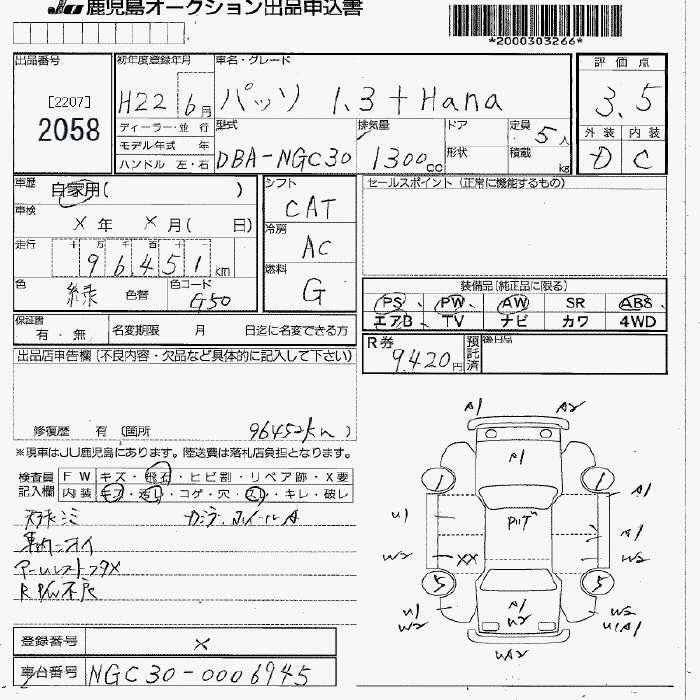 JU 鹿児島オークション出品申込書
*2000303266*
出品番号
[2207]
2058
初年度登録年月
H22 6月
車名・グレード
パッソ 1.3 + Hana
評価点
3.5
外装 内装
D C
ディーラー・並行
モデル年式 年
ハンドル 左・右
型式
DBA-NGC30
排気量
1300cc
ドア
形状
定員 5人
積載 kg
車歴 自家用( )
車検 × 年 × 月( 日)
走行 十 万 千 百 十 一
96,451km
色 緑 色替
色コード G50
シフト
CAT
冷房
AC
燃料
G
セールスポイント(正常に機能するもの)
装備品(純正品に限る)
PS、 PW、 AW SR ABS、
エアB、 TV ナビ カワ 4WD
保証書
有・無
名変期限 月 日迄に名変できる方
R券
9,420円
預託済
後日品
出品店申告欄(不良内容・欠品など具体的に記入して下さい)
修復歴 有 (箇所 96452km )
※現車はJU鹿児島にあります。陸送費は落札店負担となります。
検査員記入欄
FW キズ・飛石・ヒビ割・リペア跡・X要
内装 キズ・汚レ・コゲ・穴・スレ・キレ・破レ
A1 A2
A1
1 1
A1
U1
W2 XX W2
5 5
U1 A1 W2
W2 W2 U1A1
UA2
登録番号 ×
車台番号 NGC30-0006945